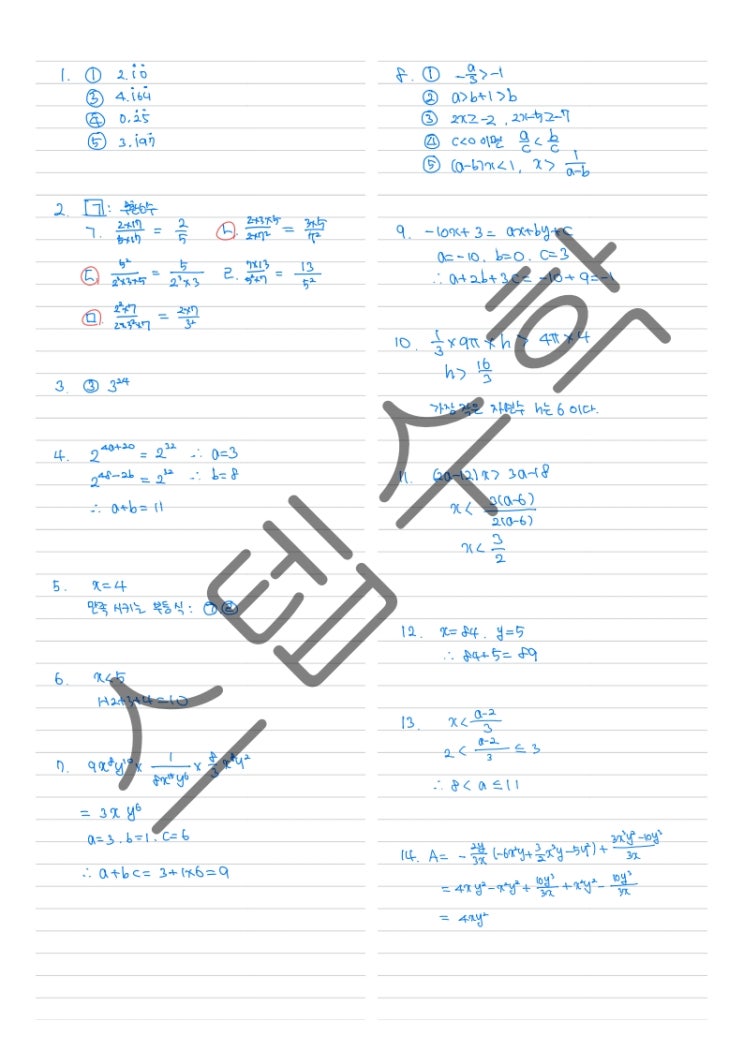 1. ① 2.1̇0̇
③ 4.1̇64̇
④ 0.2̇5̇
⑤ 3.1̇97̇
2. ㄱ:
ㄱ. 2×17/5×17 = 2/5 ㄴ. 2×3×5/2×7² = 3×5/7²
ㄷ. 5²/2³×3×5 = 5/2³×3 ㄹ. 7×13/5²×7 = 13/5²
ㅁ. 2²×7/2×3²×7 = 2×7/3²
3. ③ 3²⁴
4. 2^(4a+20) = 2³² ∴ a=3
2^(48-2b) = 2³² ∴ b=8
∴ a+b = 11
5. x=4
만족 시키는 부등식: ㉠
6. x<5
1+2+3+4=10
7. 9x⁸y¹⁰ × 1/8x¹⁰y⁶ × 8/3 x³y²
= 3x y⁶
a=3. b=1. c=6
∴ a+bc = 3+1×6=9
8. ① -a/3>-1
② a>b+1>b
③ 2x≥-2, 2x-5≥-7
④ c<0 이면 a/c < b/c
⑤ (a-b)x<1, x> 1/a-b
9. -10x+3 = ax+by+c
a=-10. b=0. c=3
∴ a+2b+3c= -10+9=-1
10. 1/3 ×9π×h > 4π×4
h> 16/3
가장 작은 자연수 h는 6 이다.
11. (2a-12)x> 3a-18
x< 3(a-6)/2(a-6)
x< 3/2
12. x=84. y=5
∴ 84+5= 89
13. x< a-2/3
2< a-2/3 ≤3
∴ 8<a≤11
14. A= - 2y/3x (-6x²y+3/2x³y-5y²)+ 3x³y²-10y³/3x
= 4xy²-x²y²+ 10y³/3x +x²y²- 10y³/3x
= 4xy²
스텝수학